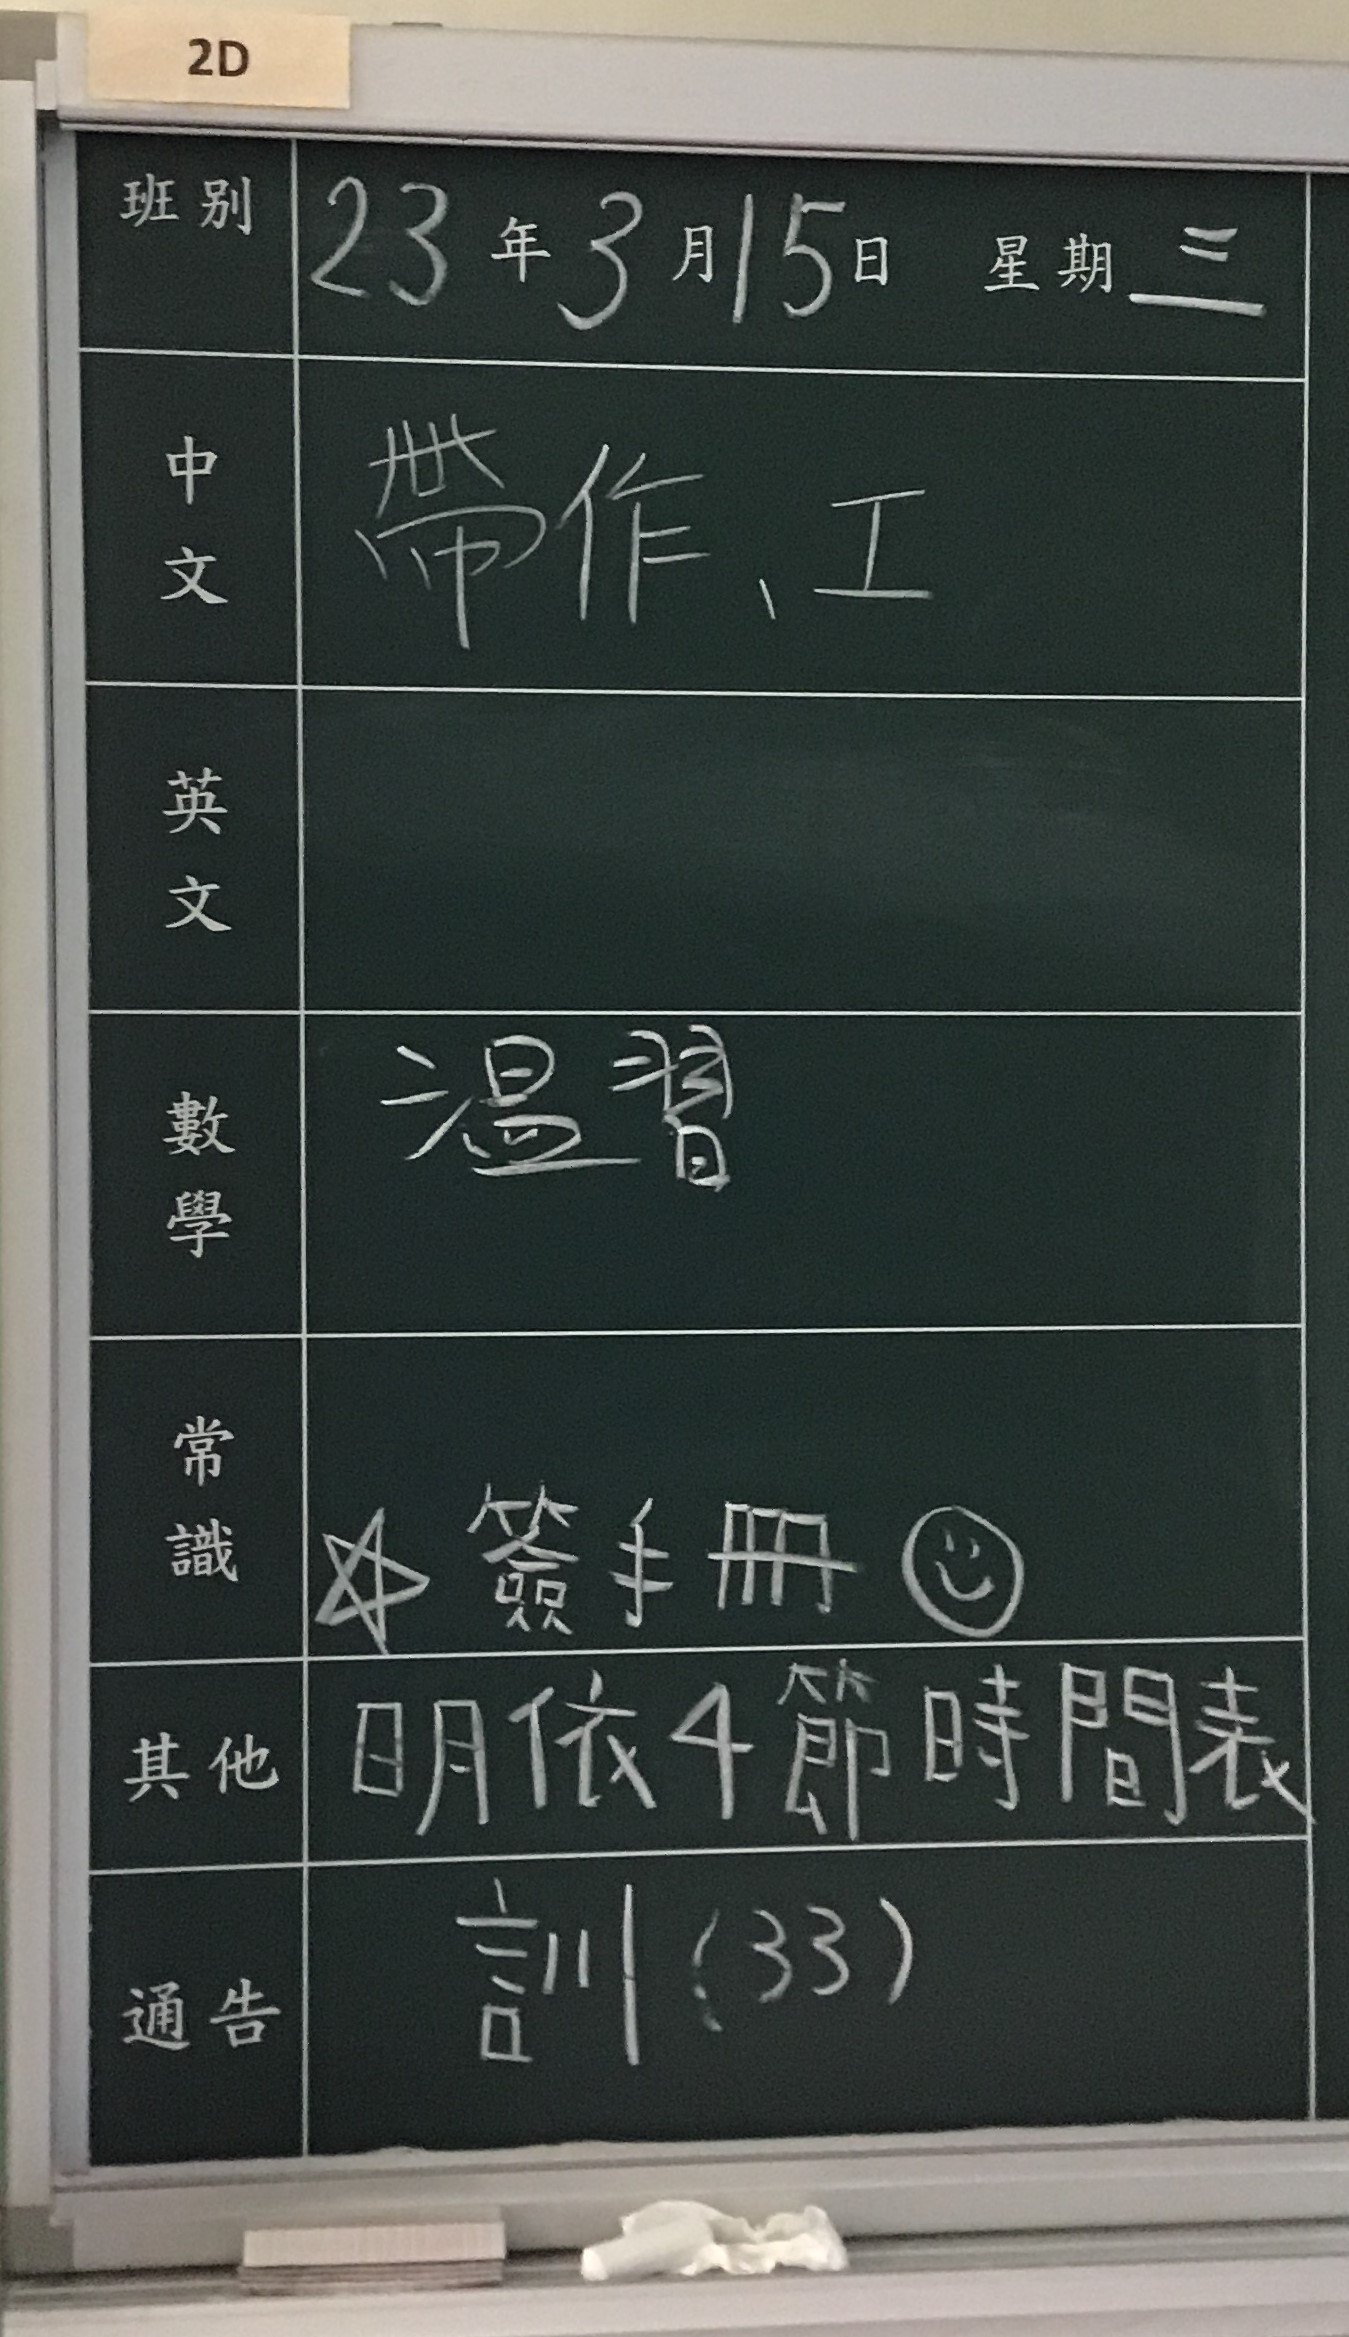 2D
班別 23年3月15日 星期三
中文 帶作、工
英文
數學 溫習
常識 ☆簽手冊☺
其他 明依4節時間表
通告 訓(33)